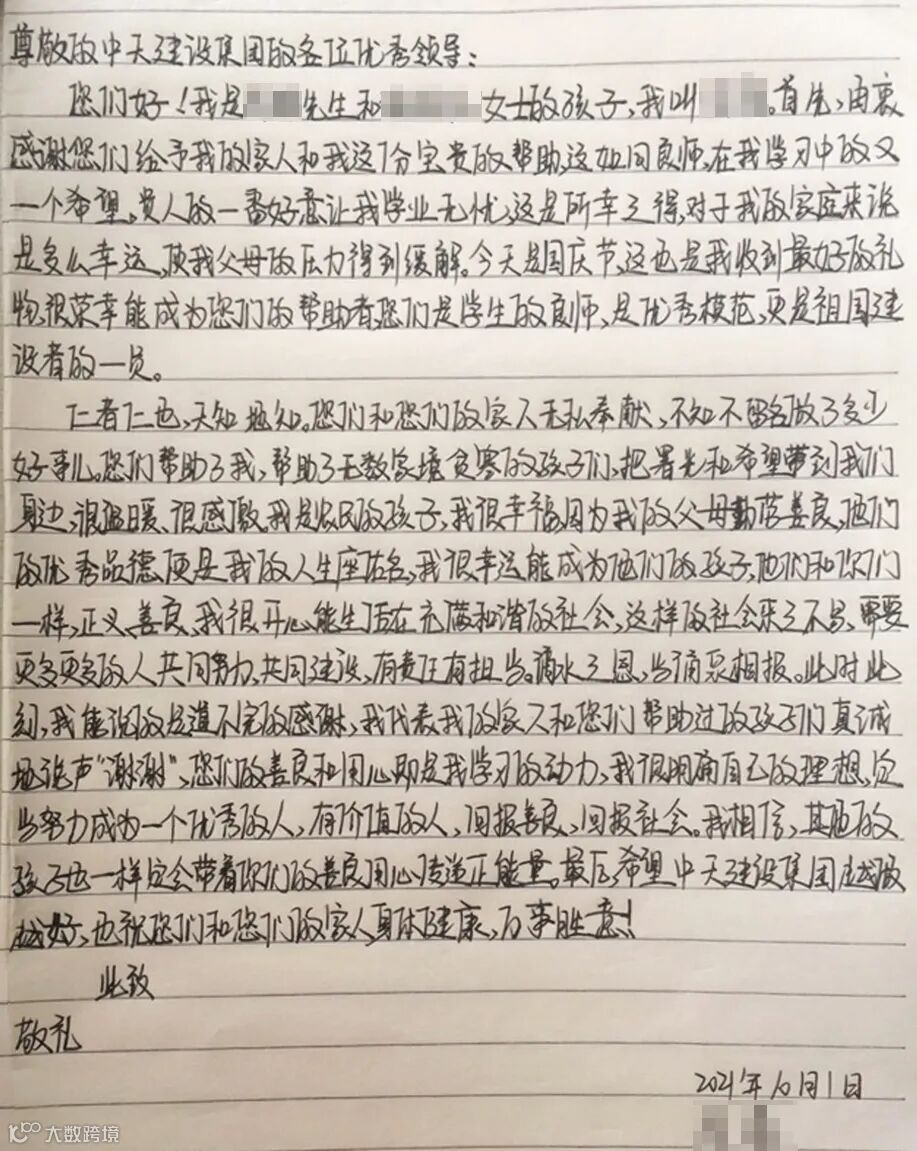 尊敬的中天建设集团的各位优秀领导:
您们好!我是先生和女士的孩子,我叫。首先,由衷
感谢您们给予我的家人和我这份宝贵的帮助,这如同良师,在我学习中的又
一个希望。贵人的一番好意让我学业无忧,这是所幸之得,对于我的家庭来说
是多么幸运,使我父母的压力得到缓解。今天是国庆节,这也是我收到最好的礼
物,很荣幸能成为您们的帮助者,您们是学生的良师,是优秀模范,更是祖国建
设者的一员。
仁者仁也,天知地知。您们和您们的家人无私奉献,不知不留名做了多少
好事儿。您们帮助了我,帮助了无数家境贫寒的孩子们,把曙光和希望带到我们
身边,很温暖、很感激。我是农民的孩子,我很幸福,因为我的父母勤劳善良,他们
的优秀品德,便是我的人生座右名,我很幸运能成为他们的孩子,他们和你们
一样,正义、善良、我很开心能生活在充满和谐的社会,这样的社会来之不易,需要
更多更多的人共同努力,共同建设,有责任有担当。滴水之恩,当涌泉相报。此时此
刻,我能说的是道不完的感谢,我代表我的家人和您们帮助过的孩子们真诚
地说声“谢谢”,您们的善良和用心即是我学习的动力,我很明确自己的理想,定
当努力成为一个优秀的人,有价值的人,回报善良,回报社会。我相信,其他的
孩子也一样定会带着你们的善良用心传递正能量。最后,希望中天建设集团越做
越好,也祝您们和您们的家人身体健康,万事胜意!
此致
敬礼
2021年10月1日
大数跨境